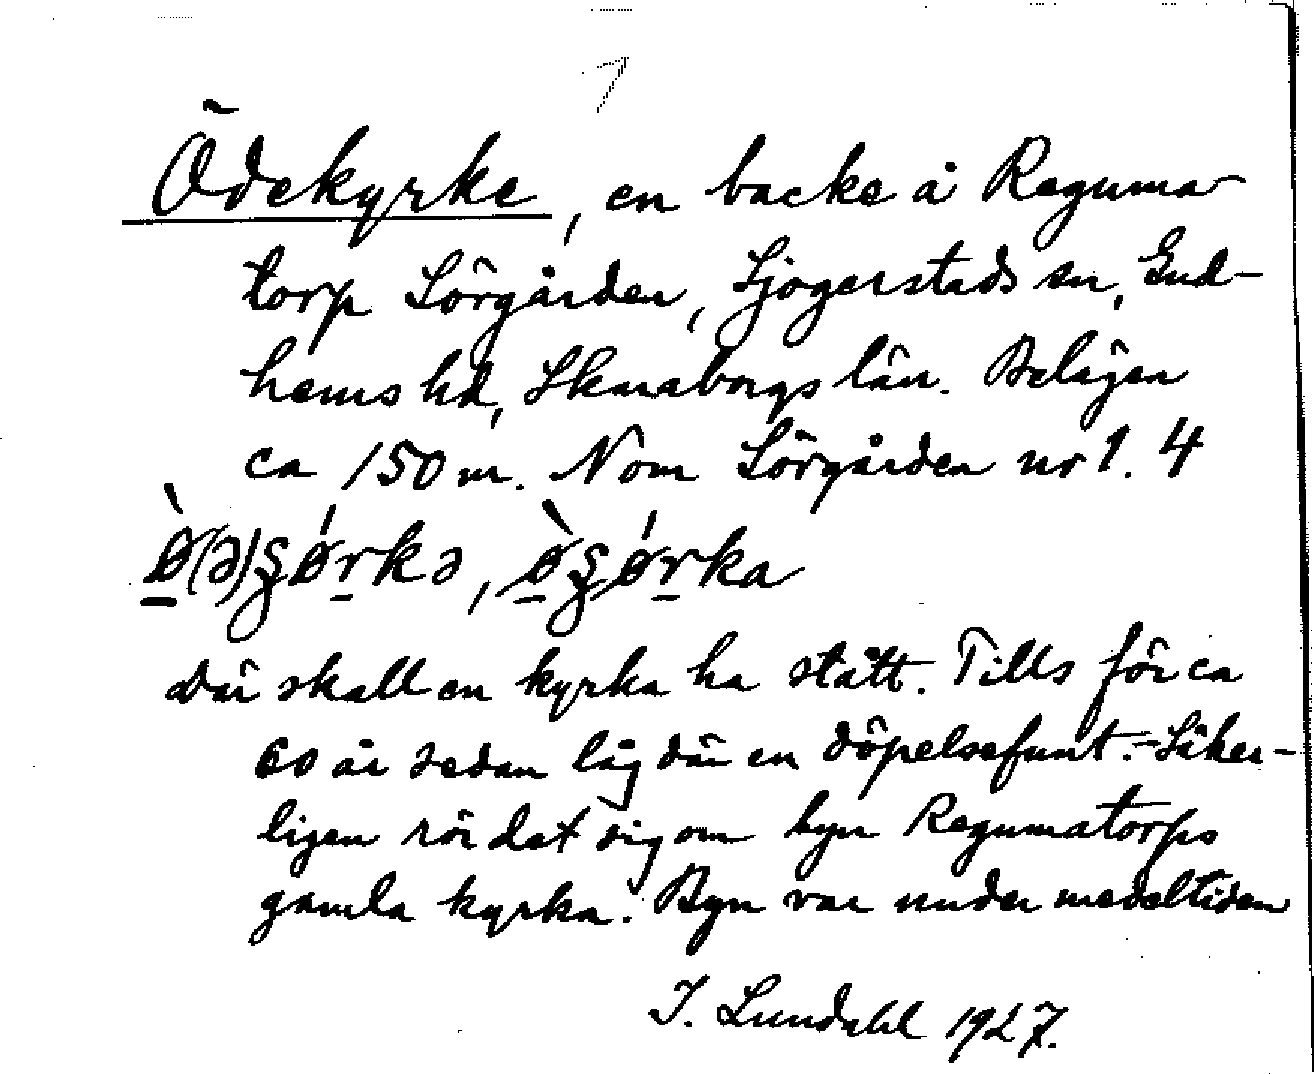 1
Ödekyrke, en backe å Reguma-
torp Sörgården, Sjogerstads sn, Gud-
hems hd, Skaraborgs län. Belägen
ca 150 m. N om Sörgården nr 1. 4
där skall en kyrka ha stått. Tills för ca
60 år sedan låg där en döpelsefunt. - Säker-
ligen rör det sig om byn Regumatorps
gamla kyrka. Byn var under medeltiden
I. Lundahl 1927.